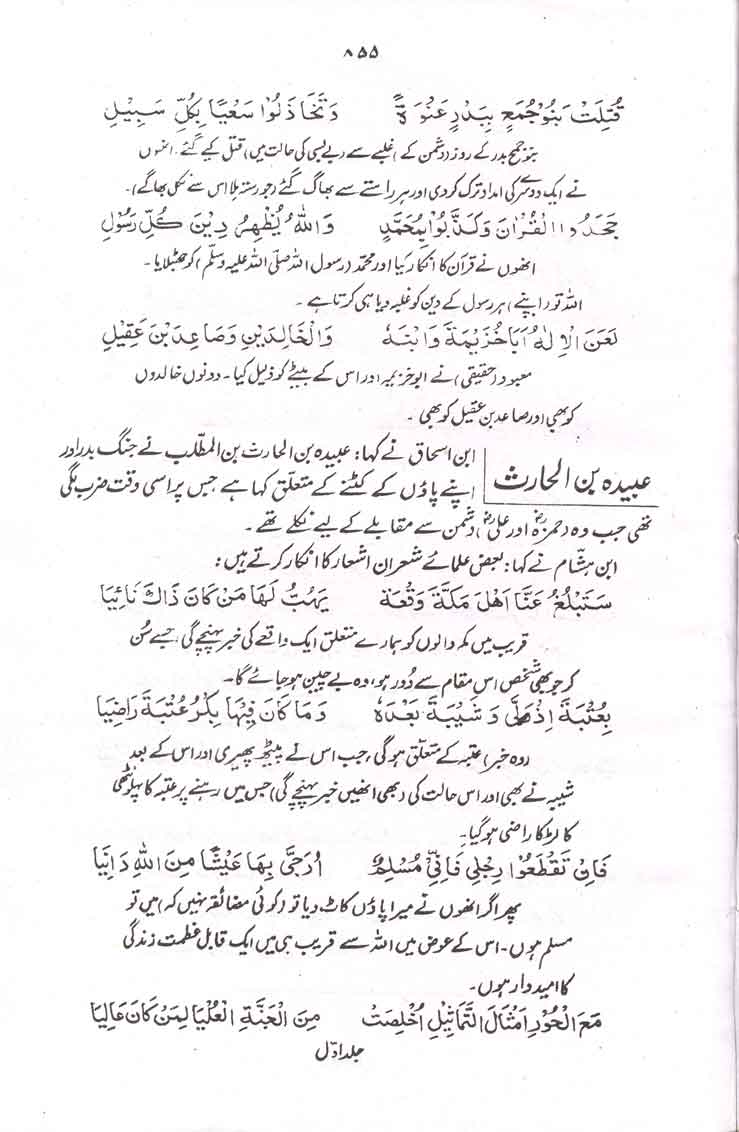 ۸۵۵
قُتِلَتْ بَنُوْ جُمَحٍ بِبَدْرٍ عَنْوَةً وَتَخَاذَلُوْا سَعْيًا بِكُلِّ سَبِيْلِ
بنو جمح بدر کے روز (دشمن کے) غلبے سے (بے بسی کی حالت میں) قتل کیے گئے۔ انھوں
نے ایک دوسرے کی امداد ترک کر دی اور ہر راستے سے بھاگ گئے (جو رستہ ملا اس سے نکل بھاگے)۔
جَحَدُوا الْقُرْاٰنَ وَكَذَّبُوْا بِمُحَمَّدٍ وَاللهُ يُظْهِرُ دِيْنَ كُلِّ رَسُوْلِ
انھوں نے قرآن کا انکار کیا اور محمد (رسول اللہ صلّی اللہ علیہ وسلّم) کو جھٹلایا۔
اللہ تو (اپنے) ہر رسول کے دین کو غلبہ دیا ہی کرتا ہے۔
لَعَنَ الْاِلٰهُ اَبَا خُزَيْمَةَ وَابْنَهٗ وَالْخَالِدَيْنِ وَصَاعِدَ بْنَ عَقِيْلِ
معبود (حقیقی) نے ابوخزیمہ اور اس کے بیٹے کو ذلیل کیا۔ دونوں خالدوں
کو بھی اور صاعد بن عقیل کو بھی۔
عبیدہ بن الحارث
ابن اسحاق نے کہا: عبیدہ بن الحارث بن المطّلب نے جنگ بدر اور
اپنے پاؤں کے کٹنے کے متعلّق کہا ہے جس پر اسی وقت ضرب لگی
تھی جب وہ (حمزہؓ اور علیؓ) دشمن سے مقابلے کے لیے نکلے تھے۔
ابن ہشام نے کہا: بعض علمائے شعر ان اشعار کا انکار کرتے ہیں:
سَتَبْلُغُ عَنَّا اَهْلَ مَكَّةَ وَقْعَةٌ يَهُبُّ لَهَا مَنْ كَانَ ذَاكَ نَائِيَا
قریب میں مکہ والوں کو ہمارے متعلق ایک واقعے کی خبر پہنچے گی، جسے سُن
کر جو بھی شخص اس مقام سے دُور ہو، وہ بے چین ہو جائے گا۔
بِعُتْبَةَ اِذْ وَلّٰى وَشَيْبَةَ بَعْدَهٗ وَمَا كَانَ فِيْهَا بِكْرُ عُتْبَةَ رَاضِيَا
(وہ خبر) عتبہ کے متعلّق ہوگی، جب اس نے پیٹھ پھیری اور اس کے بعد
شیبہ نے بھی اور اس حالت کی (بھی انھیں خبر پہنچے گی) جس میں رہنے پر عتبہ کا پہلوٹھی
کا لڑکا راضی ہو گیا۔
فَاِنْ تَقْطَعُوْا رِجْلِيْ فَاِنِّيْ مُسْلِمٌ اُرَجِّيْ بِهَا عَيْشًا مِنَ اللهِ دَانِيَا
پھر اگر انھوں نے میرا پاؤں کاٹ دیا تو (کوئی مضائقہ نہیں کہ) میں تو
مسلم ہوں۔ اس کے عوض میں اللہ سے قریب ہی میں ایک قابل عظمت زندگی
کا امیدوار ہوں۔
مَعَ الْحُوْرِ اَمْثَالَ التَّمَاثِيْلِ اُخْلِصَتْ مِنَ الْجَنَّةِ الْعُلْيَا لِمَنْ كَانَ عَالِيَا
جلد اوّل